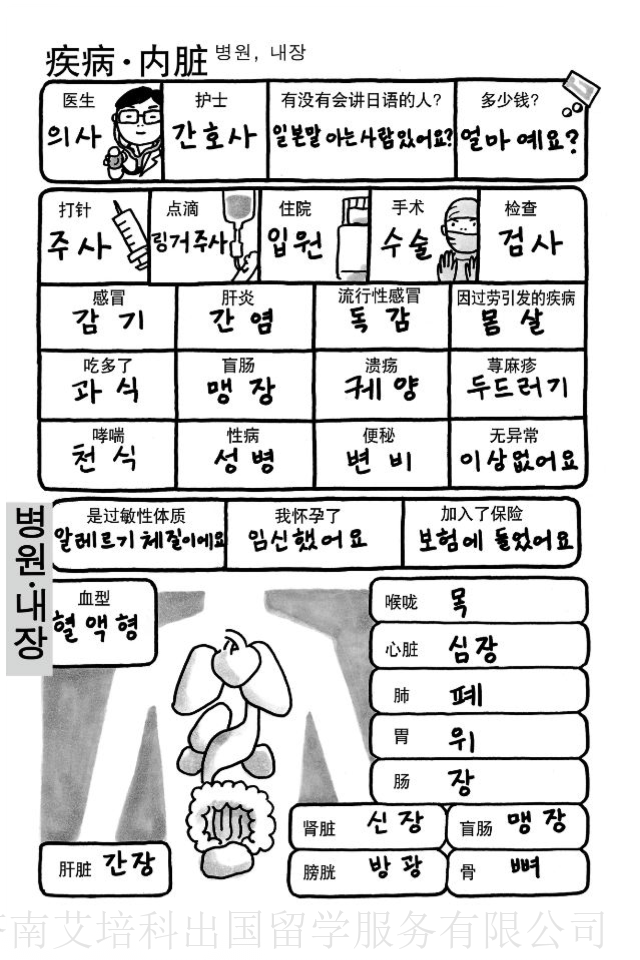 疾病·内脏 병원, 내장
医生 护士 有没有会讲日语的人? 多少钱?
의사 간호사 일본말 아는 사람 있어요? 얼마예요?
打针 点滴 住院 手术 检查
주사 링거주사 입원 수술 검사
感冒 肝炎 流行性感冒 因过劳引发的疾病
감기 간염 독감 몸살
吃多了 盲肠 溃疡 荨麻疹
과식 맹장 궤양 두드러기
哮喘 性病 便秘 无异常
천식 성병 변비 이상없어요
是过敏性体质 我怀孕了 加入了保险
알레르기 체질이에요 임신했어요 보험에 들었어요
병원·내장
血型
혈액형
喉咙 목
心脏 심장
肺 폐
胃 위
肠 장
肾脏 신장 盲肠 맹장
肝脏 간장
膀胱 방광 骨 뼈
济南艾培科出国留学服务有限公司